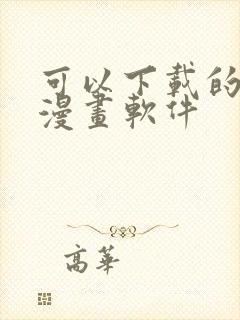 可以下載的
漫畫軟件
高華